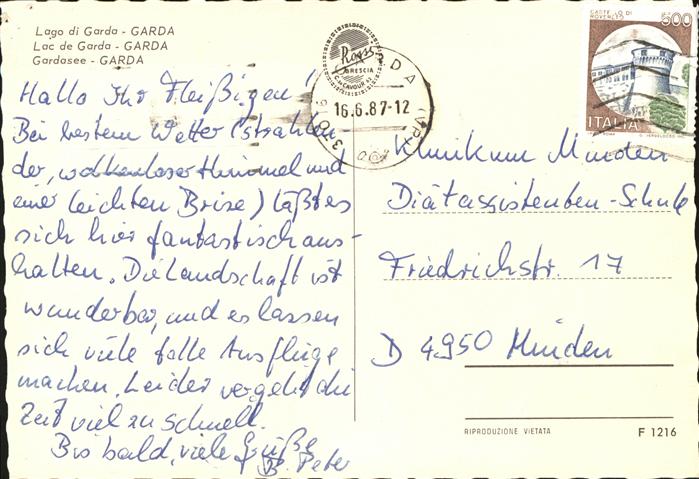 Lago di Garda - GARDA
Lac de Garda - GARDA
Gardasee - GARDA
Hallo Ihr Fleißigen!
Bei bestem Wetter (strahlen
der, wolkenloser Himmel und
einer leichten Brise) läßt es
sich hier fantastisch aus-
halten. Die Landschaft ist
wunderbar, und es lassen
sich viele tolle Ausflüge
machen. Leider vergeht die
Zeit viel zu schnell.
Bis bald, viele Grüße
B. Peter
Rossi
BRESCIA
16.6.87-12
CASTELLO DI
ROVERETO
500
ITALIA
Klinikum Minden
Diätassistenten-Schule
Friedrichstr. 17
D 4950 Minden
RIPRODUZIONE VIETATA
F 1216